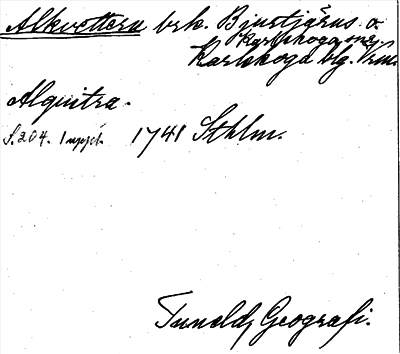 Alkvettern brk. Bjurtjärns o.
Karlskoga snr.
Karlskoga blg. Vrm.
Alquitra.
S. 204. 1 uppl. 1741 Sthlm.
Tunelds Geografi.